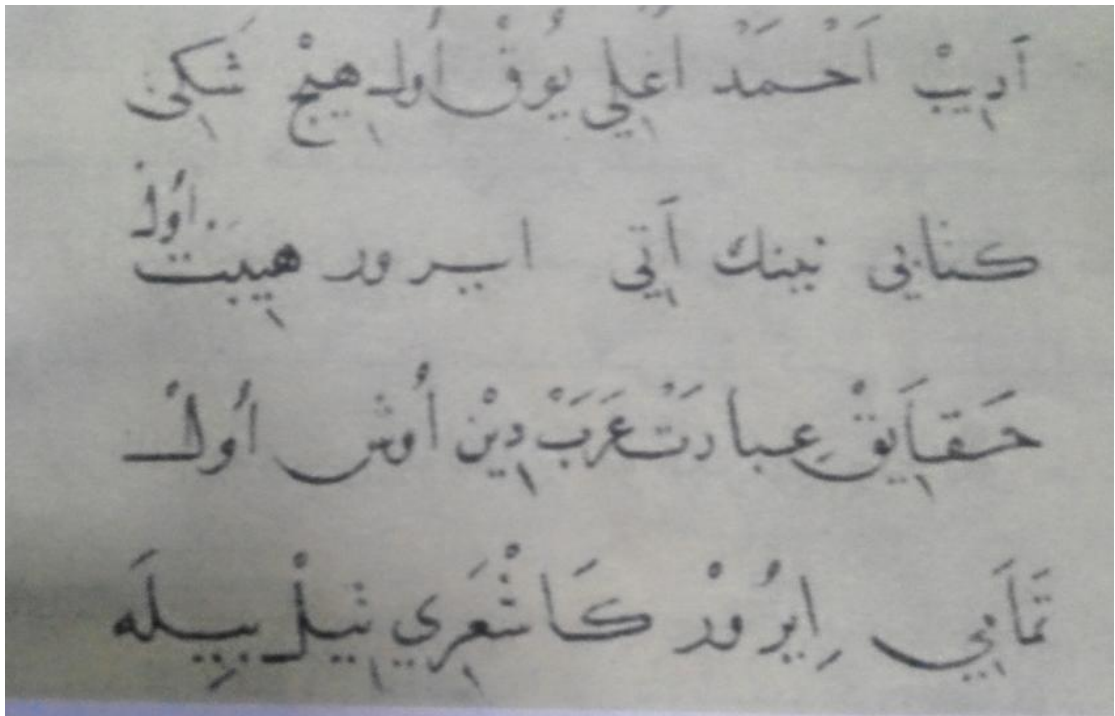 اَديبْ اَحْمَدْ اغلي يُوقْ اُول هيچْ شَكي
كتابي نينك اَتي ايرور هيبَتْ اُولْ
حَقاَيقْ عِبادَتْ عَرَبْ دِيْن اُوش اُولْ
تَماَمي اِيرُورْ كَاشْغَري تيلْ بِيلَه